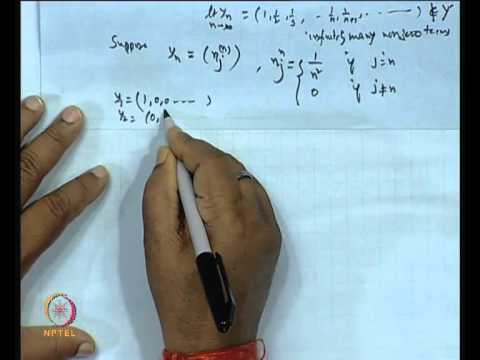 lt yₙ = (1, 1/2, 1/3, - 1/n, 1/n+1, - - -) ∉ Y
n→∞
infinitely many nonzero terms
Suppose
yₙ = (ηⱼ⁽ⁿ⁾) , ηⱼⁿ = { 1/n² if j=n
0 if j≠n
y₁ = (1, 0, 0 - - - - )
y₂ = (0,
NPTEL